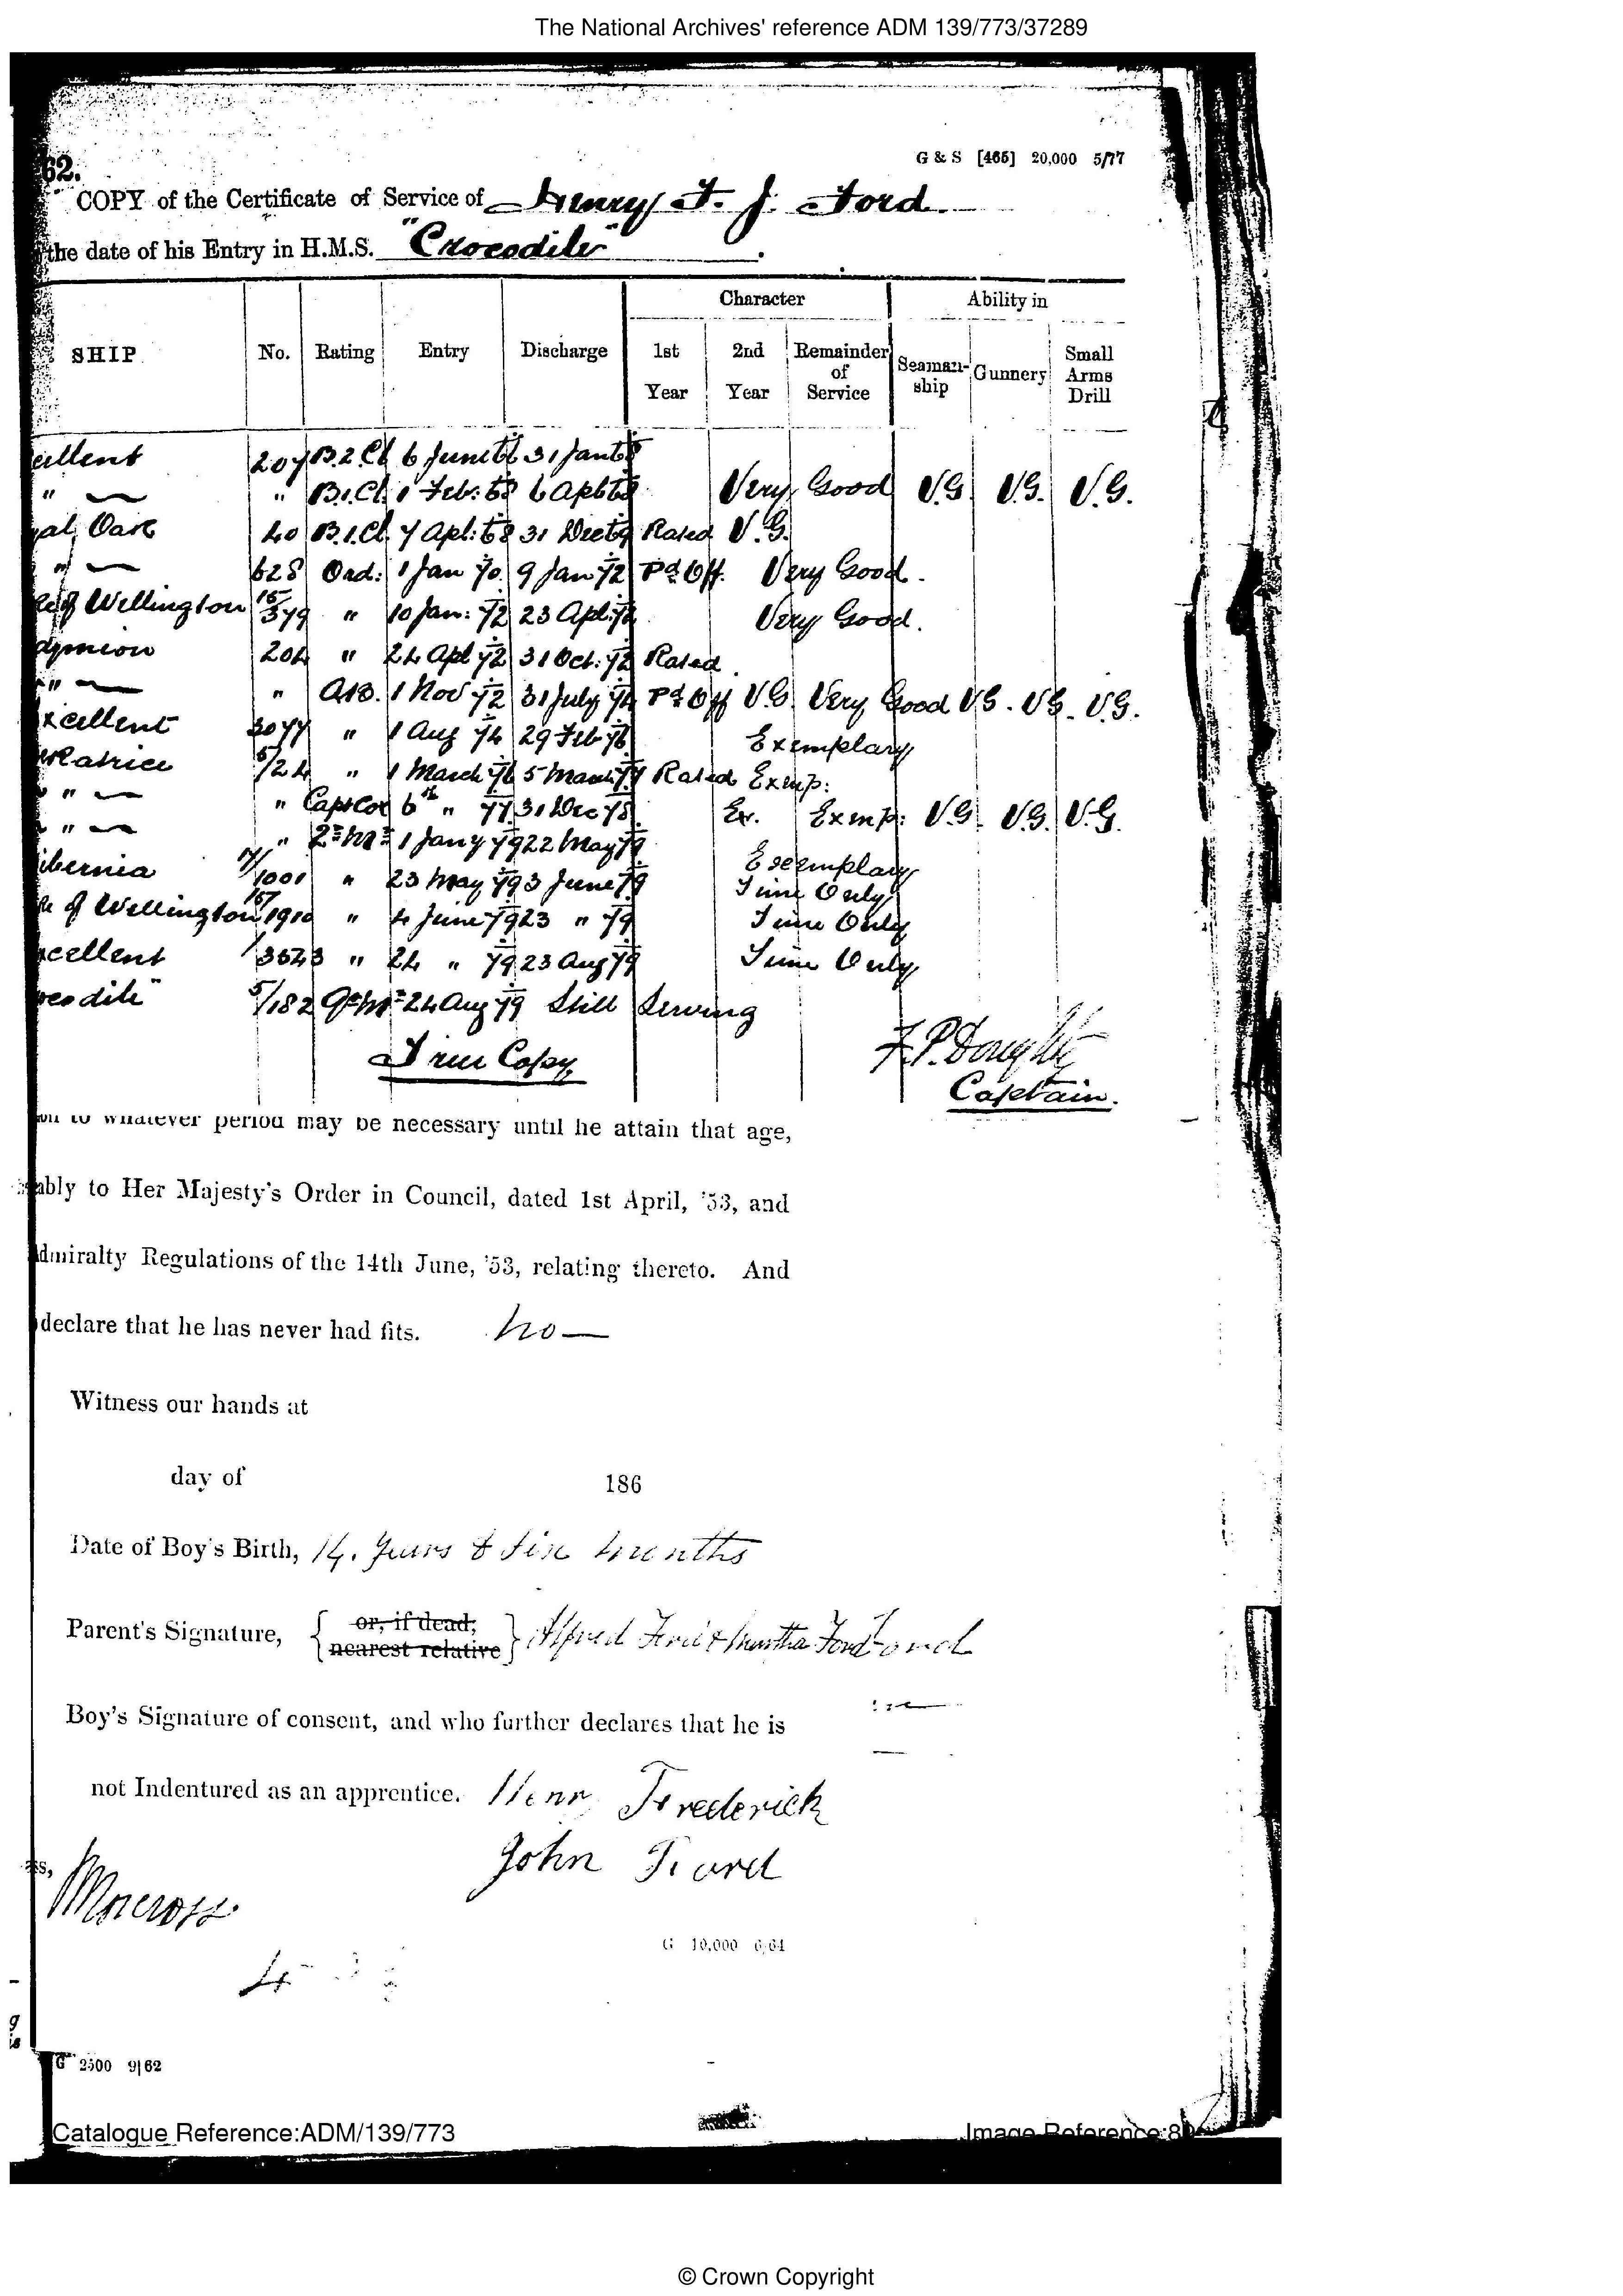 The National Archives' reference ADM 139/773/37289
62.
G & S [465] 20,000 5/77
COPY of the Certificate of Service of Henry F. J. Ford
the date of his Entry in H.M.S. "Crocodile"
Character Ability in
SHIP No. Rating Entry Discharge 1st Year 2nd Year Remainder of Service Seaman-ship Gunnery Small Arms Drill
cellent 207 B.2.Cl 6 June 66 31 Jan 68
" " B.1.Cl. 1 Feb: 68 6 Apl 68 Very Good V.G. V.G. V.G.
yal Oak 40 B.1.Cl. 7 Apl: 68 31 Dec 69 Rated V.G.
" 628 Ord: 1 Jan 70 9 Jan 72 Pd Off. Very Good.
ke of Wellington 15/379 " 10 Jan: 72 23 Apl: 72 Very Good.
dymion 204 " 24 Apl 72 31 Oct: 72 Rated
" " A.B. 1 Nov 72 31 July 74 Pd Off V.G. Very Good V.G. V.G. V.G.
xcellent 3077 " 1 Aug 74 29 Feb 76 Exemplary
5/24 " 1 March 76 5 March 77 Rated Exemp:
" " 6th " 77 31 Dec 78 Ex. Exemp: V.G. V.G. V.G.
" " 1 Jany 79 22 May 79 Exemplary
ibernia 17/1001 " 23 May 79 3 June 79 Time Only
ke of Wellington 15/1910 " 4 June 79 23 " 79 Time Only
xcellent " 24 " 79 23 Aug 79 Time Only
rocodile" 5/182 24 Aug 79 Still Serving
True Copy
Captain.
on to whatever period may be necessary until he attain that age,
ably to Her Majesty's Order in Council, dated 1st April, '53, and
Admiralty Regulations of the 14th June, '53, relating thereto. And
declare that he has never had fits. no —
Witness our hands at
day of 186
Date of Boy's Birth, 14. Years & Six Months
Parent's Signature, { or, if dead, nearest relative } Alfred Ford & Martha Ford Ford
Boy's Signature of consent, and who further declares that he is
not Indentured as an apprentice. Henry Frederick
John Ford
G 10,000 6/64
G 2500 9/62
Catalogue Reference:ADM/139/773
Image Reference:80
© Crown Copyright